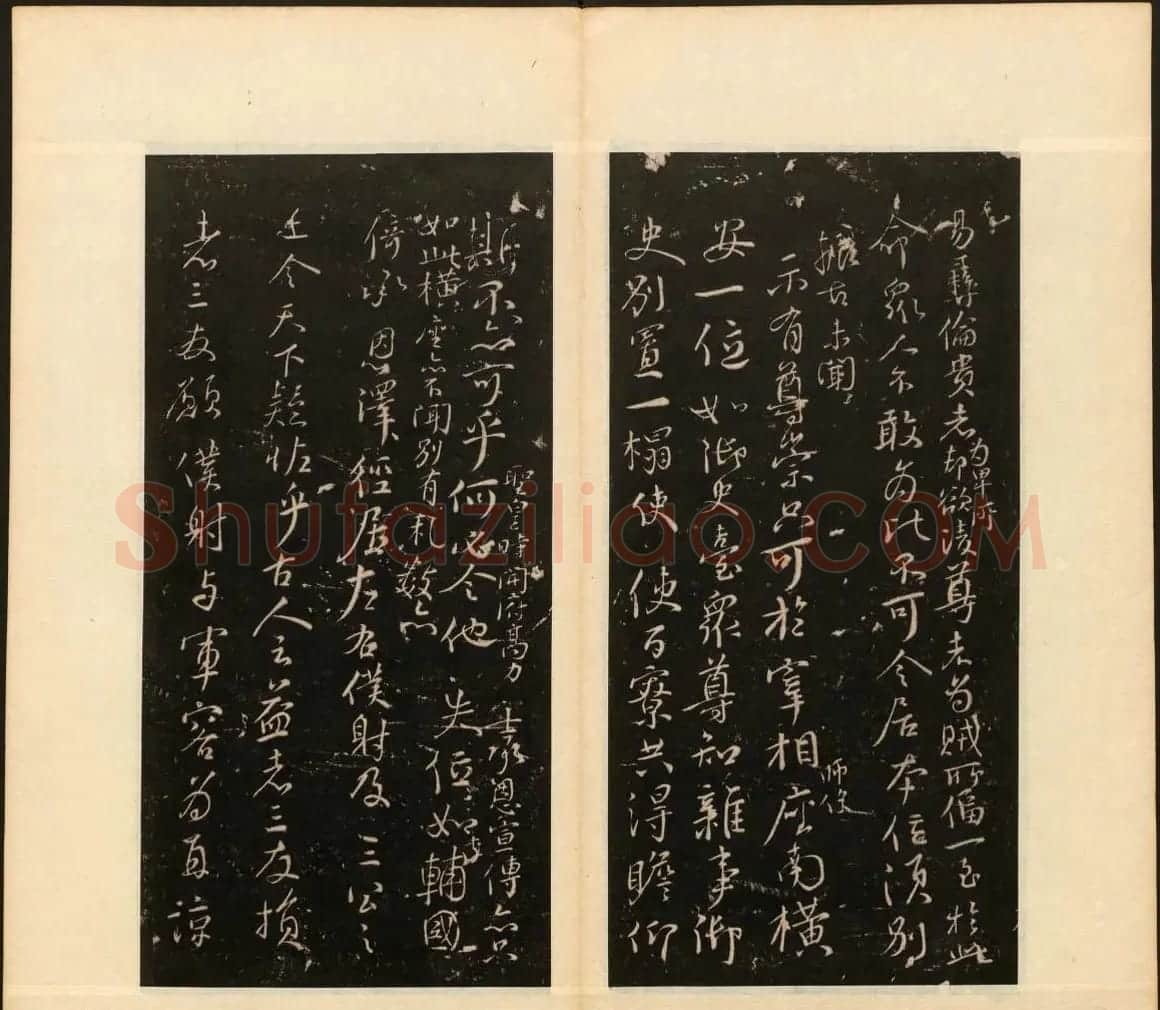 易彝倫貴者却欲陵尊者為賊所偪一至於此
為卑所
命眾人不敢為比不可令居本位須別
振古未聞
師保
示有尊崇只可於宰相座南橫
安一位如御史臺眾尊知雜事御
史別置一榻使使百寮共得瞻仰
聖皇時開府高力士承恩宣傳亦只
不亦可乎何必令他失位如李輔國
如此橫座亦不聞別有礼數亦
倚承恩澤徑居左右僕射及三公之
上令天下疑怪乎古人云益者三友損
者三友願僕射与軍容為直諒
Shufaziliao.COM